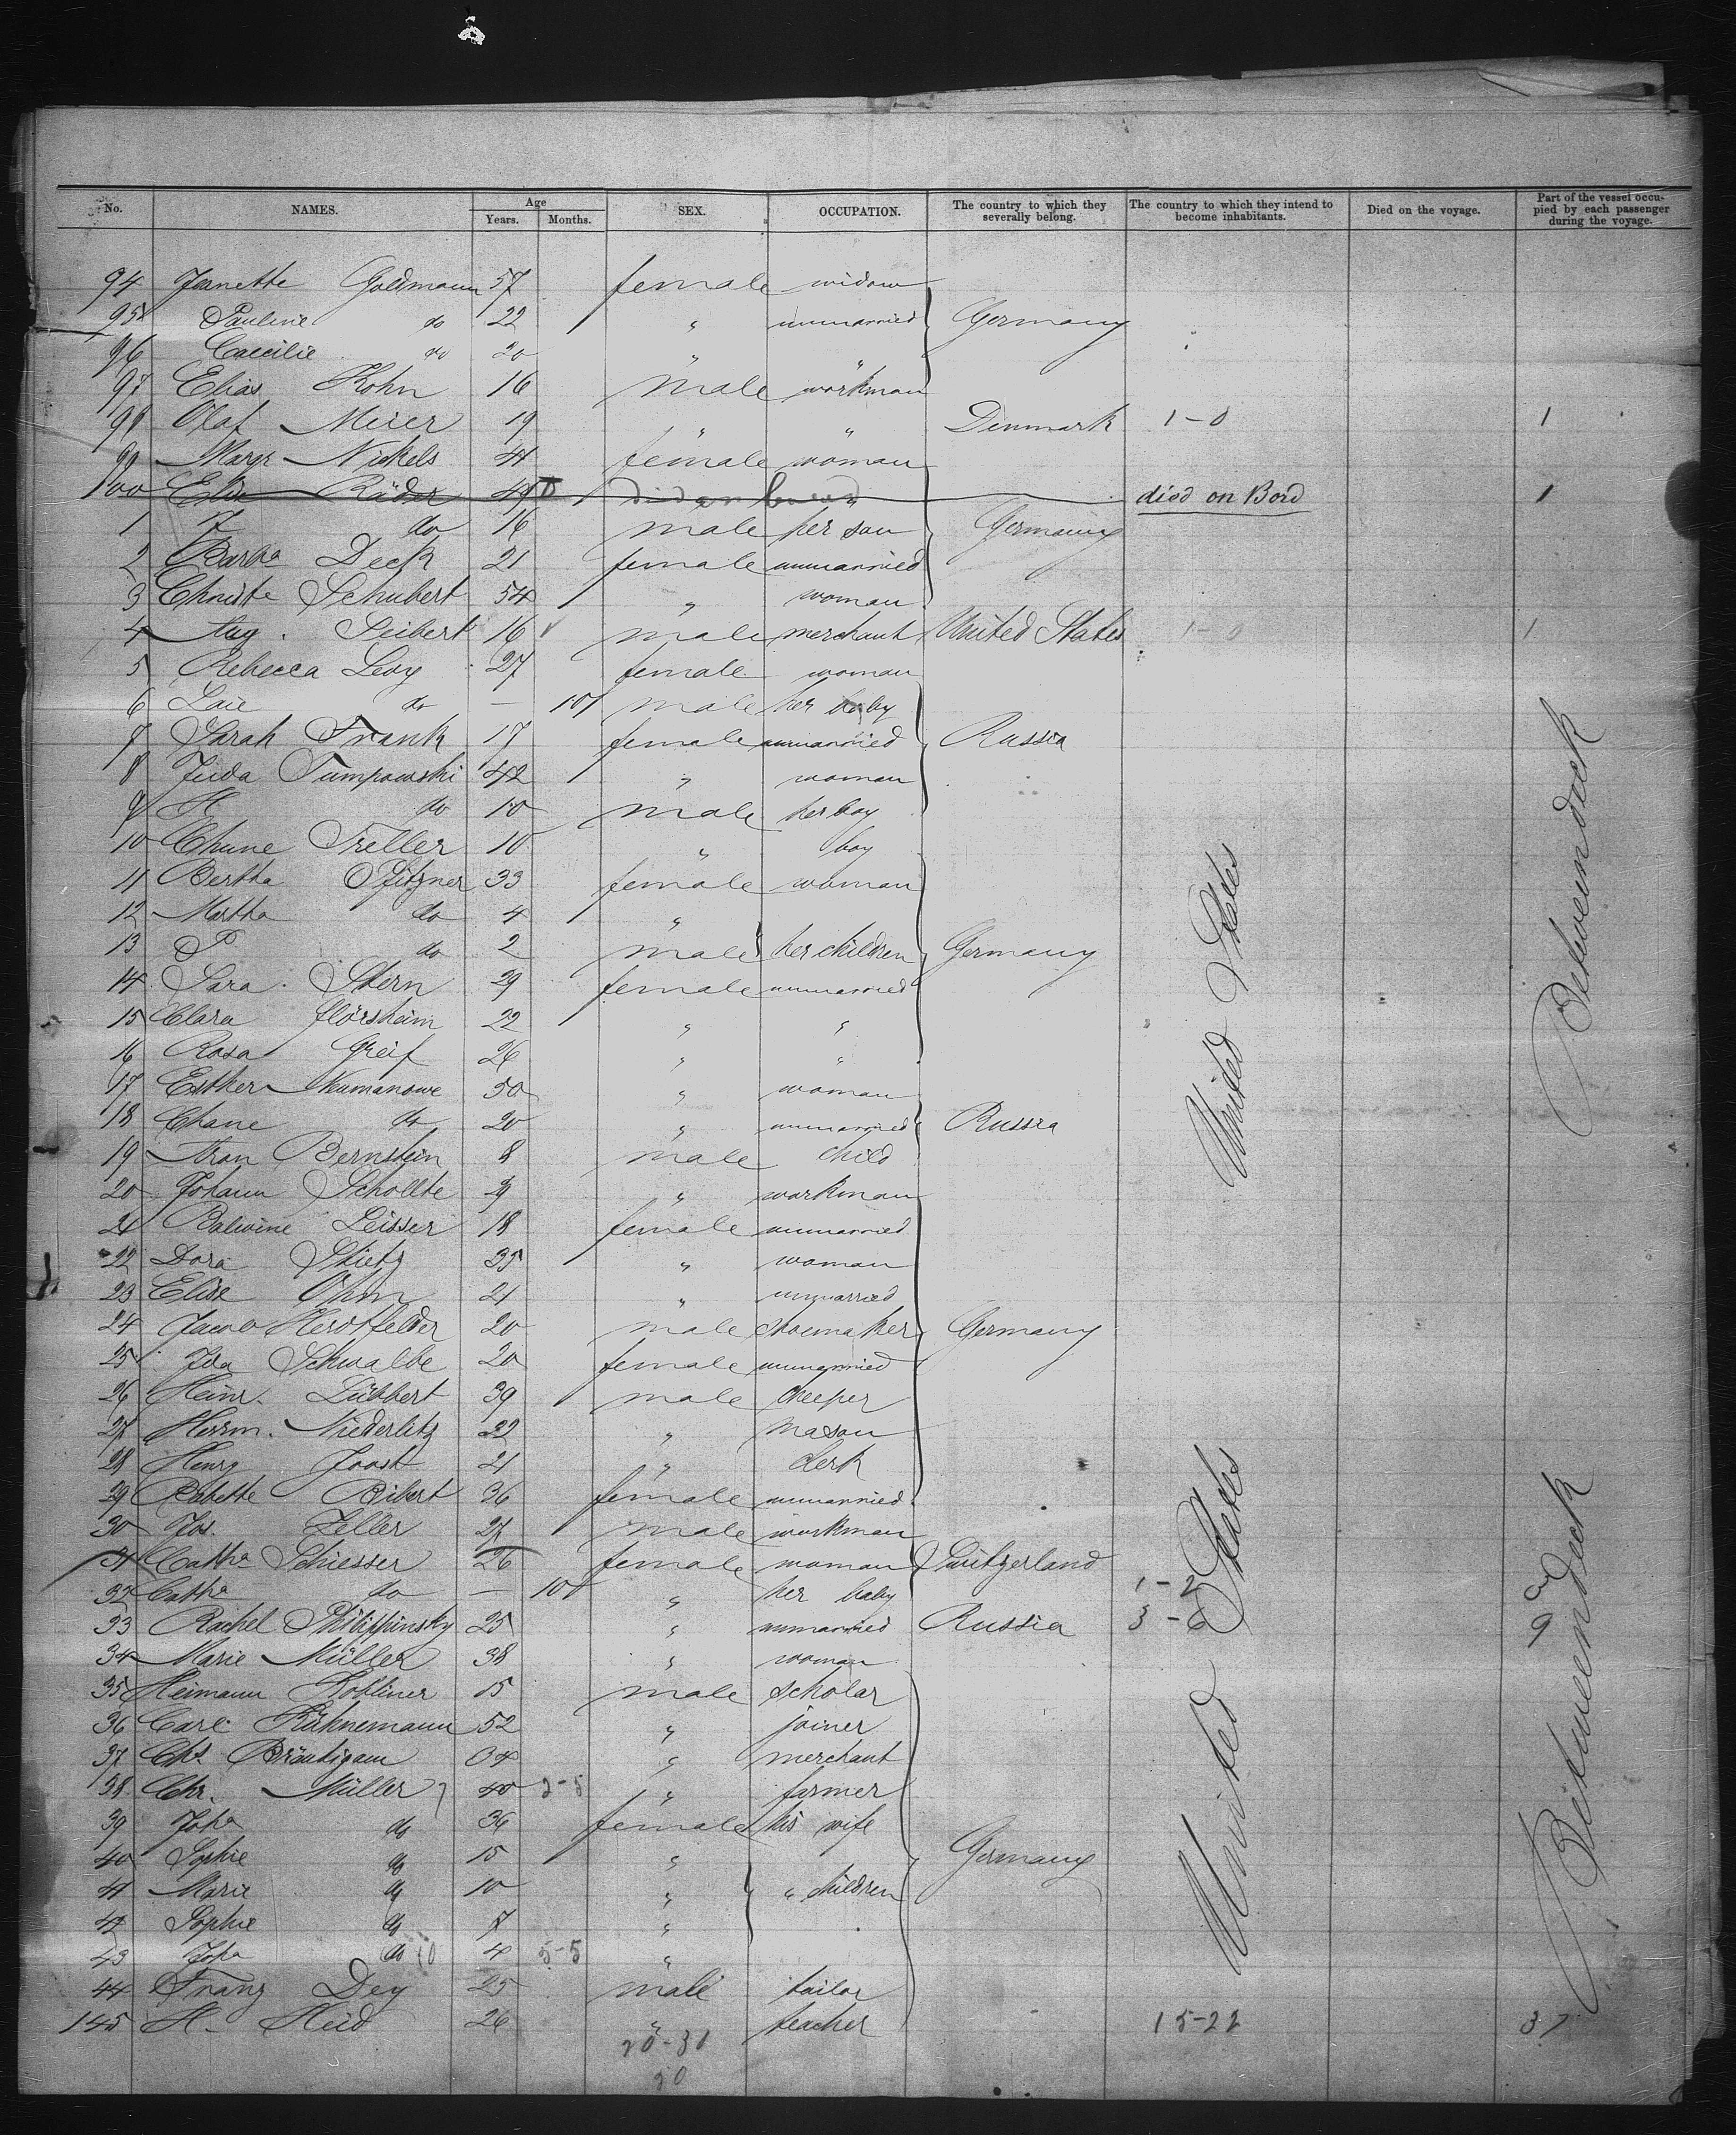 No. NAMES. Age Years. Months. SEX. OCCUPATION. The country to which they severally belong. The country to which they intend to become inhabitants. Died on the voyage. Part of the vessel occupied by each passenger during the voyage.
94 Jeanette Goldmann 57 female widow
95 Pauline do 22 " unmarried Germany
96 Caecilie do 20 " "
97 Elias Kohn 16 male workman
98 Olaf Meier 19 " " Denmark 1-0 1
99 Margr Nickels 41 female woman
100 Elise Räder 49 died on board died on Bord 1
1 F do 16 male her son Germany
2 Barba Deck 21 female unmarried
3 Christe Schubert 54 " woman
4 Aug. Seibert 16 male merchant United States 1-0 1
5 Rebecca Levy 27 female woman
6 Laie do — 10 male her baby
7 Sarah Frank 17 female unmarried Russia
8 Juda Tumpowski 42 " woman
9 H do 10 male her boy
10 Chune Treller 10 " boy
11 Bertha Pfitzner 33 female woman
12 Martha do 4 "
13 P do 2 male her children Germany
14 Sara Stern 29 female unmarried
15 Clara Flörsheim 22 " "
16 Rosa Greif 26 " "
17 Esther Numanowe 50 " woman
18 Chane do 20 " unmarried Russia
19 Aron Bernstein 8 male child
20 Johann Schollte 29 " workman
21 Balwine Leisser 18 female unmarried
22 Dora Stietz 35 " woman
23 Elise Ohm 21 " unmarried
24 Jacob Herotfelder 20 male shoemaker Germany
25 Ida Schwalbe 20 female unmarried
26 Heinr. Lübbert 39 male cheeper
27 Herrm. Niederlitz 22 " mason
28 Henry Joost 21 " Clerk
29 Babette Bibert 36 female unmarried
30 Jos. Zeller 27 male workman
31 Catha Schiesser 26 female woman Switzerland
32 Catha do — 10 " her baby 1-2
33 Rachel Philippinsky 25 " unmarried Russia 3-6 9
34 Marie Müller 38 " woman
35 Heimann Kobliner 15 male scholar
36 Carl Kühnemann 52 " joiner
37 Chs. Bräutigam 34 " merchant
38 Chr. Müller 40 2-5 " farmer
39 Joha do 36 female his wife
40 Sophie do 15 " Germany
41 Marie do 10 " " children
42 Sophie do 7 "
43 Joha do 10 4 5-5 "
44 Franz Dey 25 male tailor
145 H. Heid 26 " teacher 15-22 37
20-31
20
United States
Betweendeck
United States
Betweendeck